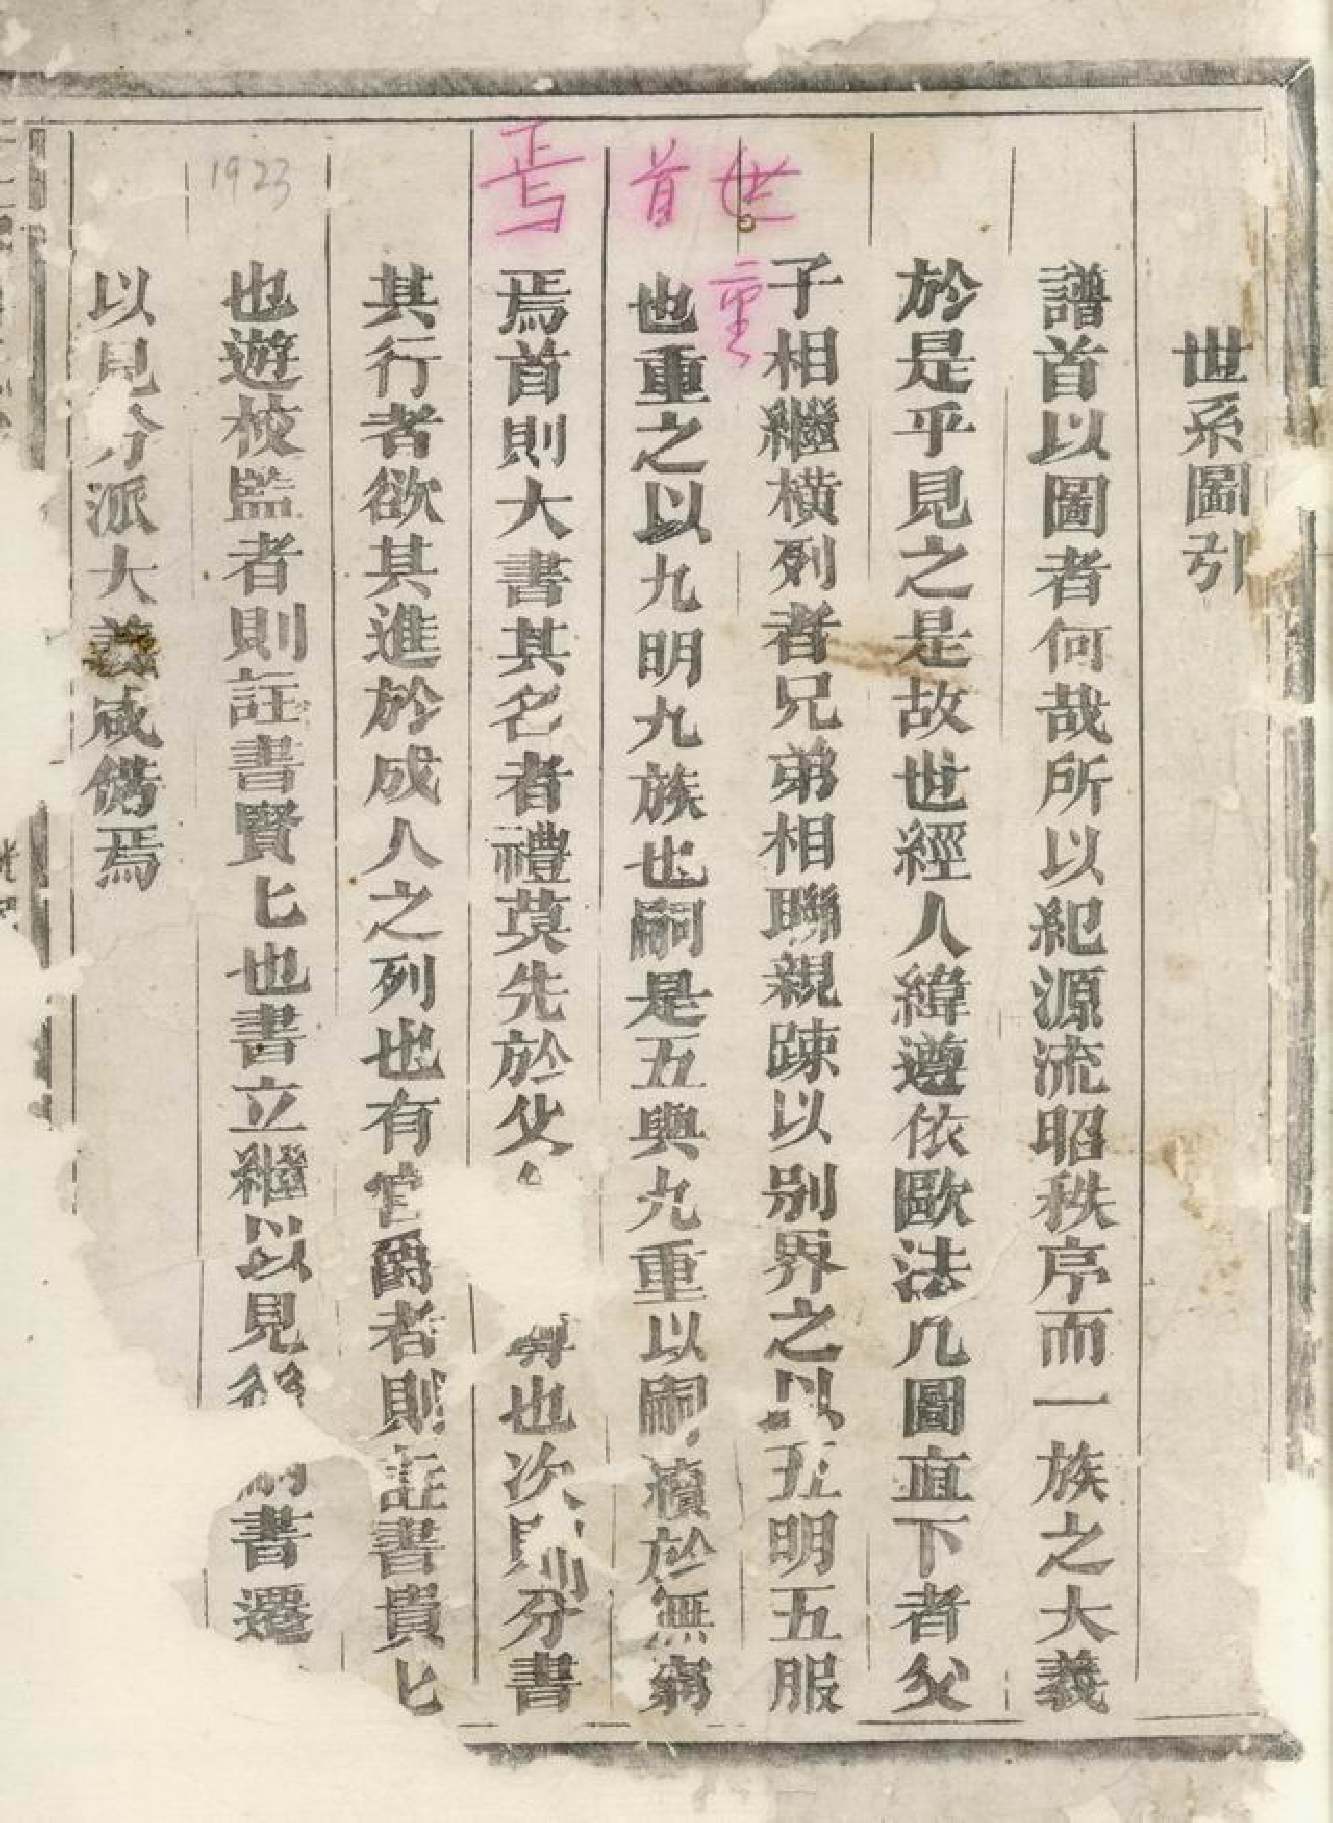 世系圖引
譜首以圖者何哉所以紀源流昭秩序而一族之大義
於是乎見之是故世經人緯遵依歐法凡圖直下者父
子相繼橫列者兄弟相聯親踈以別界之以五明五服
也重之以九明九族也嗣是五與九重以嗣續於無窮
焉首則大書其名者禮莫先於父也次則分書
其行者欲其進於成人之列也有官爵者則註書貴匕
也遊校監者則註書賢匕也書立繼以見後嗣書遷
以見分派大義咸俻焉
世
首
焉
重
1923